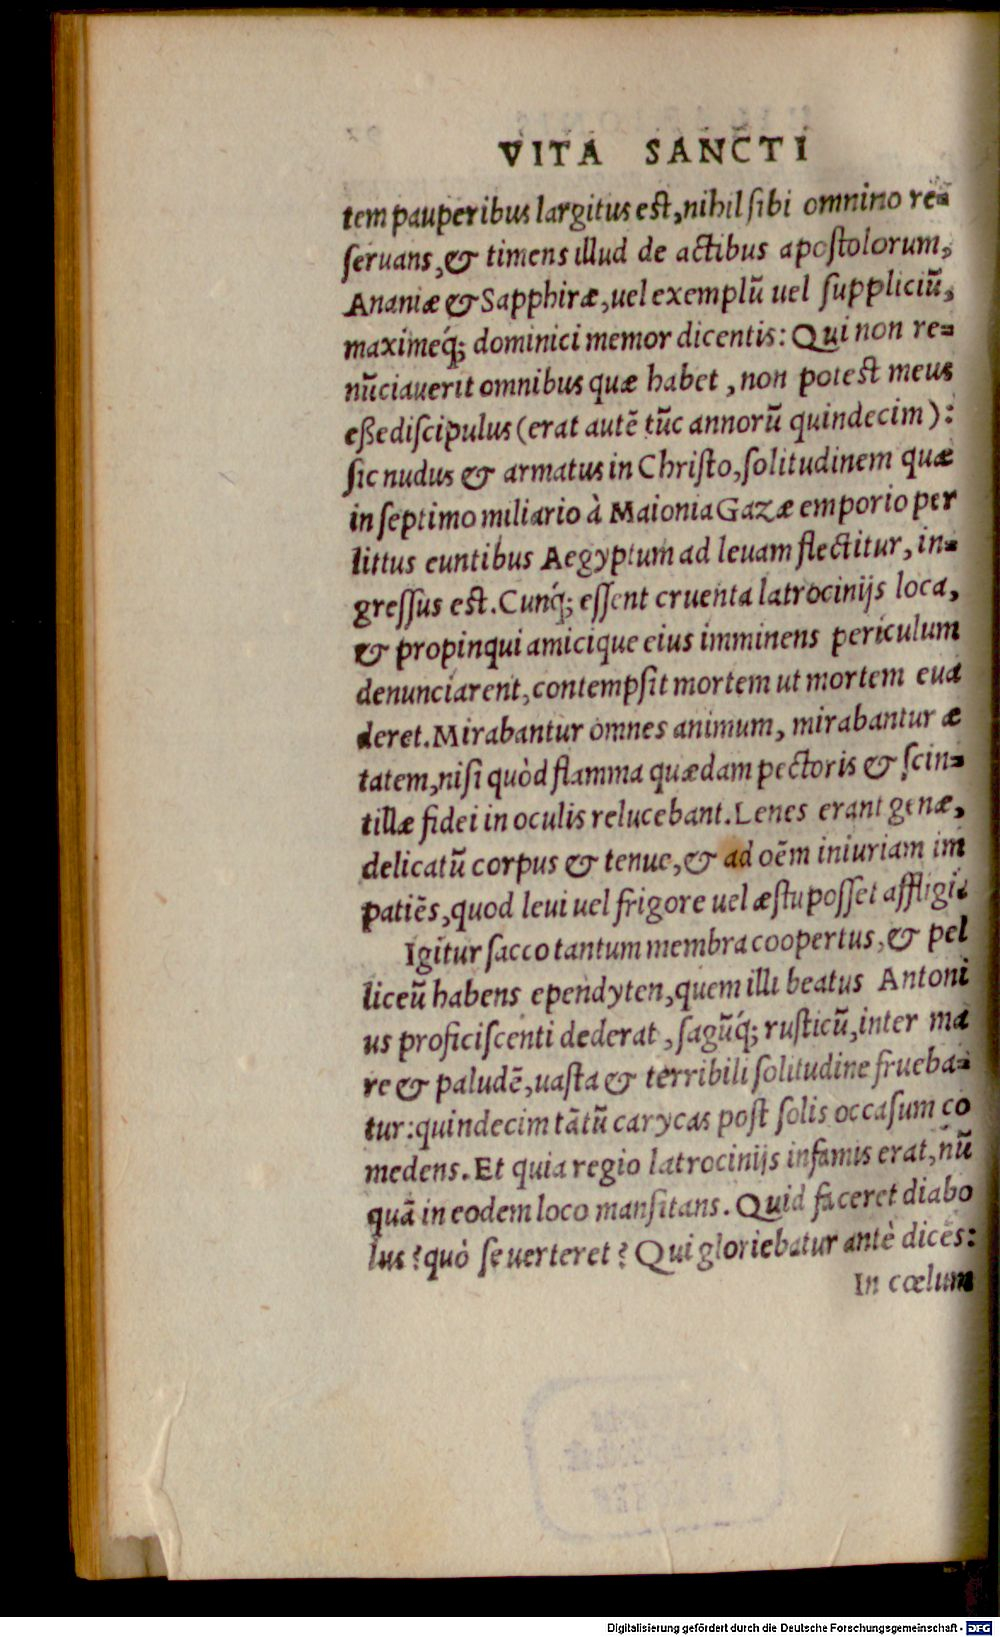 VITA SANCTI
tem pauperibus largitus est, nihil sibi omnino re=
seruans, & timens illud de actibus apostolorum,
Ananiæ & Sapphiræ, uel exemplũ uel suppliciũ,
maximeq́; dominici memor dicentis: Qui non re=
nũciauerit omnibus quæ habet, non potest meus
eße discipulus (erat autẽ tũc annorũ quindecim):
sic nudus & armatus in Christo, solitudinem quæ
in septimo miliario à Maionia Gazæ emporio per
littus euntibus Aegyptum ad leuam flectitur, in=
gressus est. Cunq́; essent cruenta latrocinijs loca,
& propinqui amicique eius imminens periculum
denunciarent, contempsit mortem ut mortem eua
deret. Mirabantur omnes animum, mirabantur æ
tatem, nisi quòd flamma quædam pectoris & scin=
tillæ fidei in oculis relucebant. Lenes erant genæ,
delicatũ corpus & tenue, & ad oẽm iniuriam im
patiẽs, quod leui uel frigore uel æstu posset affligi.
Igitur sacco tantum membra coopertus, & pel
liceũ habens ependyten, quem illi beatus Antoni
us proficiscenti dederat, sagũq́; rusticũ, inter ma
re & paludẽ, uasta & terribili solitudine frueba=
tur: quindecim tãtũ carycas post solis occasum co
medens. Et quia regio latrocinijs infamis erat, nũ
quã in eodem loco mansitans. Quid faceret diabo
lus? quò se uerteret? Qui gloriebatur antè dicẽs:
In cœlum
Digitalisierung gefördert durch die Deutsche Forschungsgemeinschaft - DFG